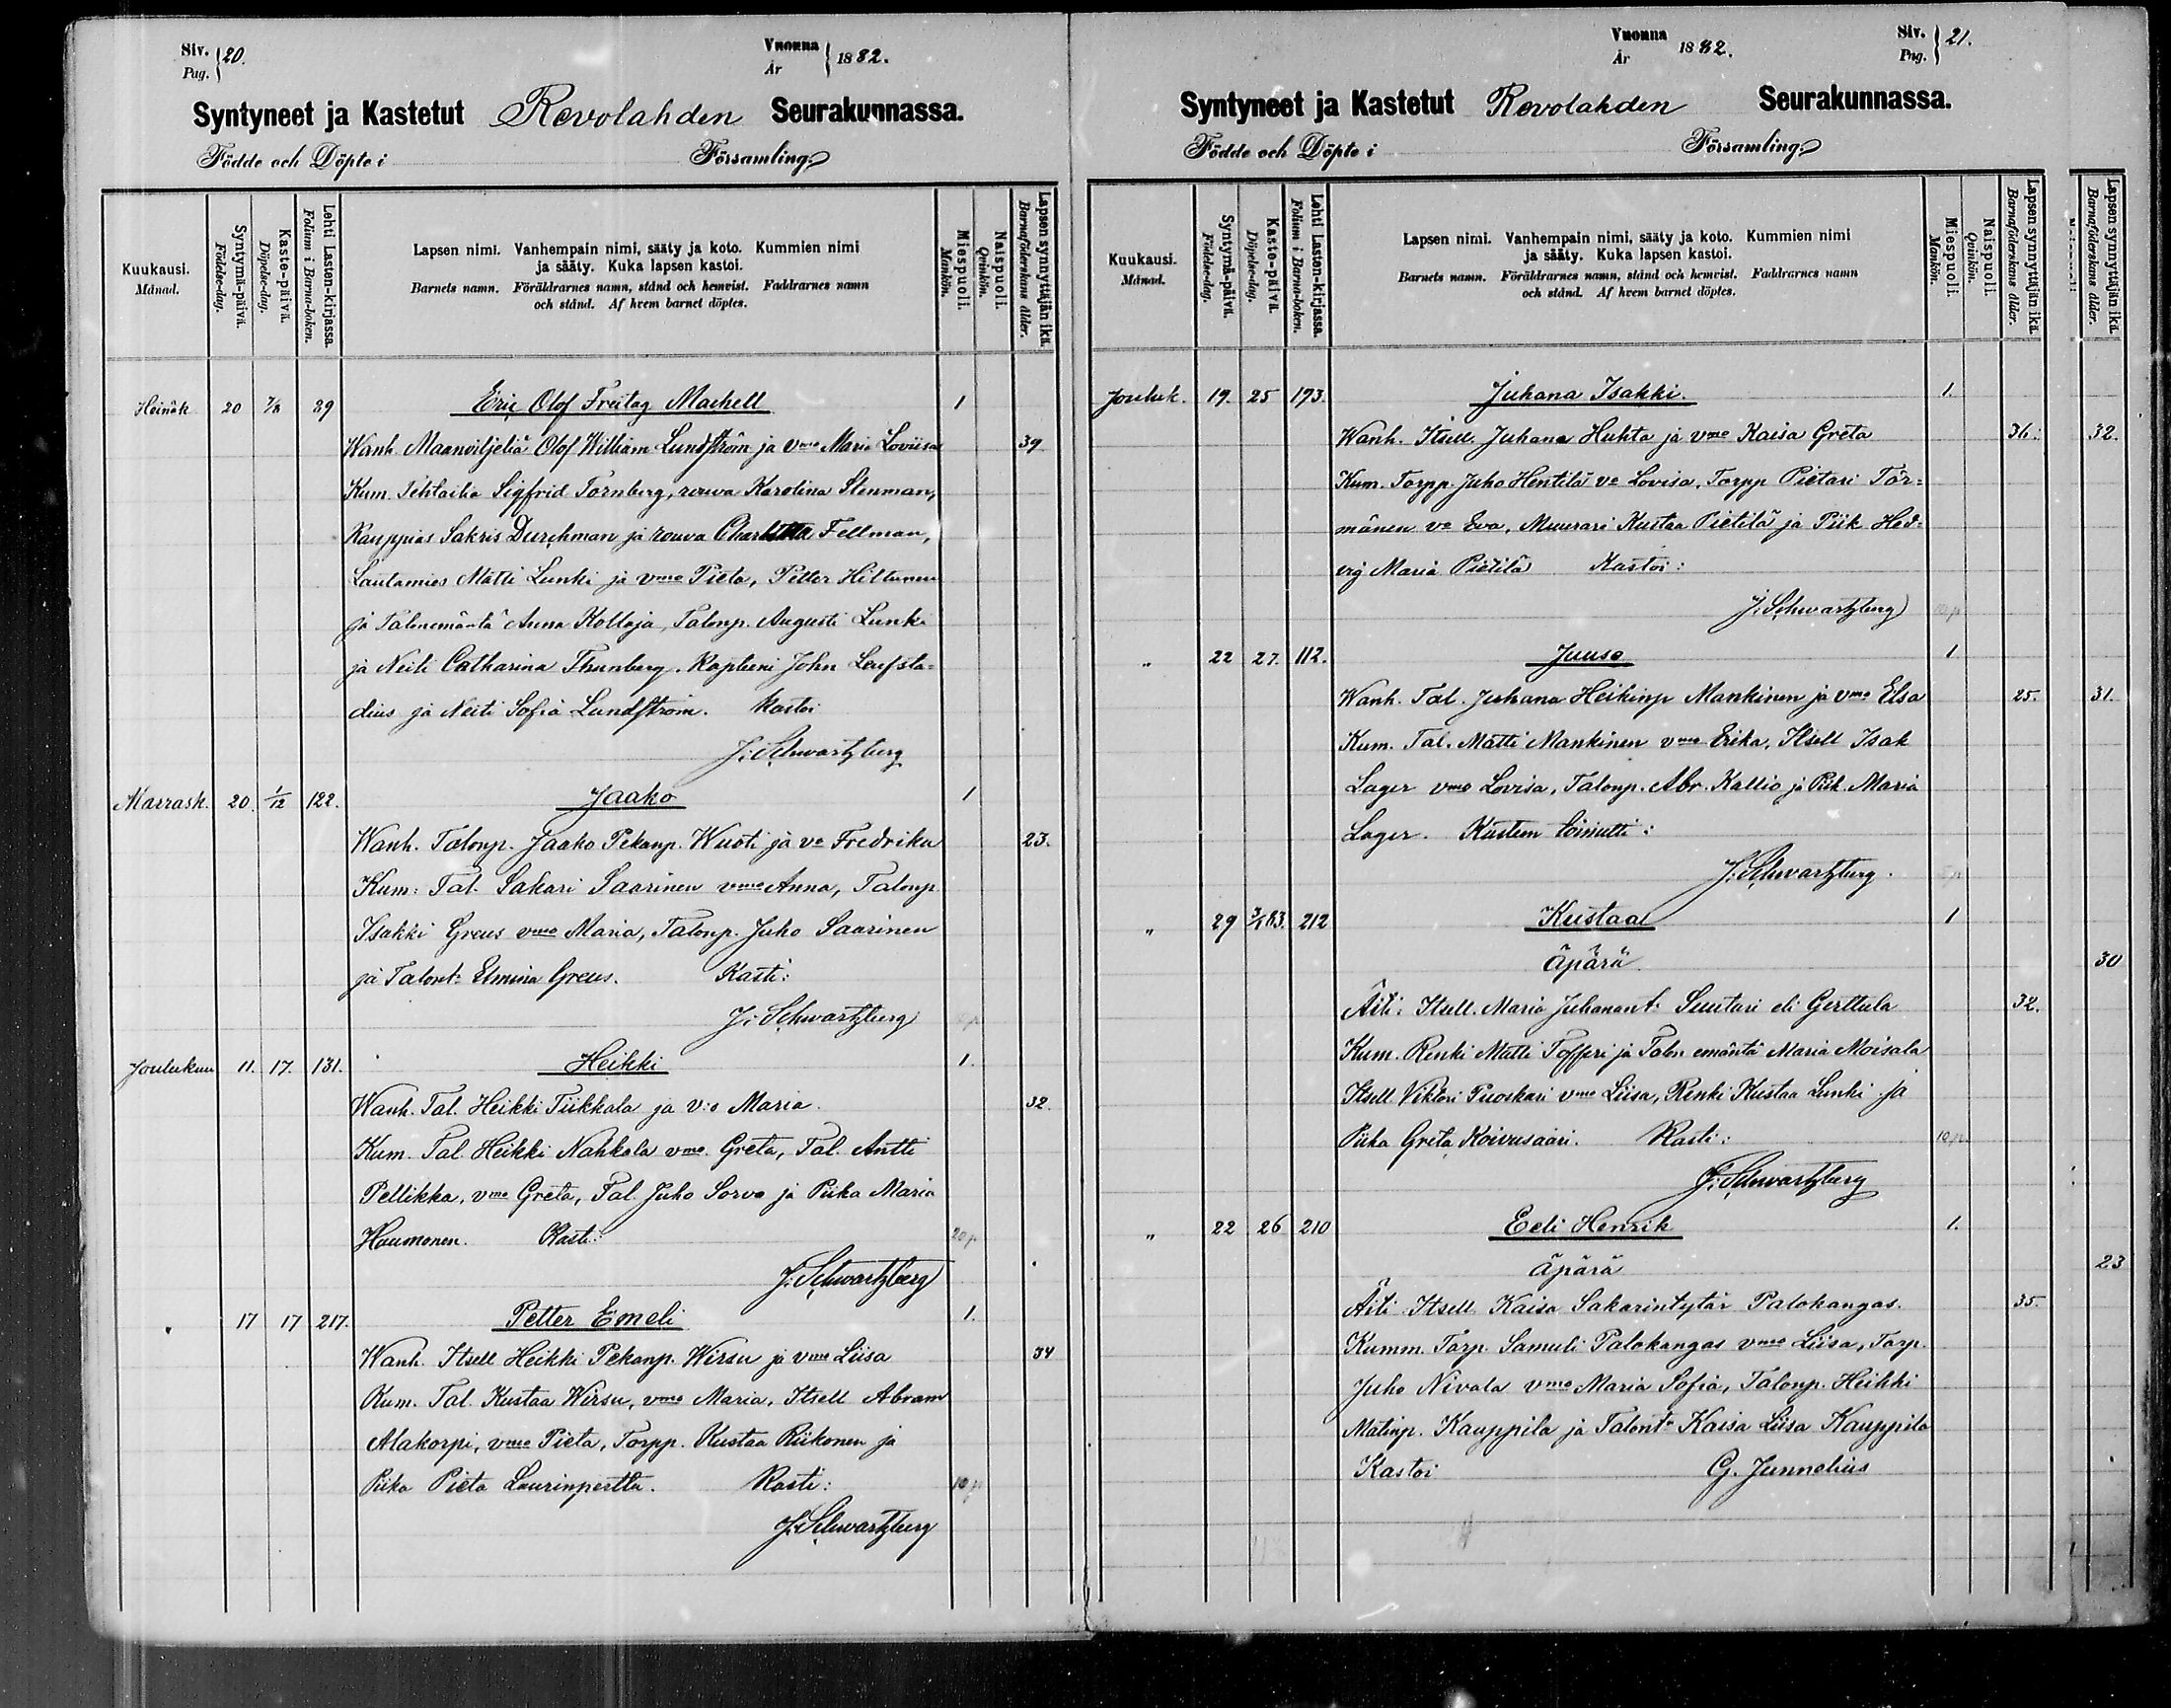 Siv. Pag. 20.
Vuonna År 1882.
Syntyneet ja Kastetut Revolahden Seurakunnassa.
Födde och Döpte i Församling
Kuukausi. Månad.
Syntymä-päivä. Födelse-dag.
Kaste-päivä. Döpelse-dag.
Lehti Lasten-kirjassa. Folium i Barna-boken.
Lapsen nimi. Vanhempain nimi, sääty ja koto. Kummien nimi
ja sääty. Kuka lapsen kastoi.
Barnets namn. Föräldrarnes namn, stånd och hemvist. Faddrarnes namn
och stånd. Af hvem barnet döptes.
Miespuoli. Mankön.
Naispuoli. Quinkön.
Lapsen synnyttäjän ikä. Barnaföderskans ålder.
Heinäk 20 7/8 89 Eric Olof Freitag Machell 1
Wanh Maanviljeliä Olof William Lundström ja vmo Maria Loviisa 39
Kum. Tehtailia Sigfrid Törnberg, rouva Karolina Stenman,
Kauppias Sakris Durchman ja rouva Charlotta Fellman,
Lautamies Matti Lunki ja vmo Pieta, Petter Hiltunen
ja Talonemäntä Anna Kollaja, Talonp. Augusti Lunki
ja Neiti Catharina Thunberg. Kapteeni John Leufsta-
dius ja Neiti Sofia Lundström. Kastoi
J. Schwartzberg
Marrask. 20. 1/12 122. Jaako 1
Wanh. Talonp. Jaako Pekanp. Wuoti ja vo Fredrika 23.
Kum: Tal. Sakari Saarinen vmo Anna, Talonp
Isakki Greus vmo Maria, Talonp. Juho Saarinen
ja Talont: Elmina Greus. Kasti:
J: Schwartzberg
Joulukuu 11. 17. 131. Heikki 1.
Wanh. Tal. Heikki Tiikkala ja v:o Maria. 32.
Kum. Tal. Heikki Nahkala vmo. Greta, Tal. Antti
Pellikka, vmo Greta, Tal. Juho Sorvo ja Piika Maria
Haumonen. Kasti: 20 p
J. Schwartzberg
" 17 17 217. Petter Emeli 1.
Wanh. Itsell Heikki Pekanp. Wirsu ja vmo Liisa 34
Kum. Tal. Kustaa Wirsu, vmo Maria, Itsell Abram
Alakorpi, vmo Pieta, Torpp. Kustaa Riikonen ja
Piika Pieta Laurinpertta. Kasti: 10 p
J. Schwartzberg
Vuonna År 1882.
Siv. Pag. 21.
Syntyneet ja Kastetut Revolahden Seurakunnassa.
Födde och Döpte i Församling
Kuukausi. Månad.
Syntymä-päivä. Födelse-dag.
Kaste-päivä. Döpelse-dag.
Lehti Lasten-kirjassa. Folium i Barna-boken.
Lapsen nimi. Vanhempain nimi, sääty ja koto. Kummien nimi
ja sääty. Kuka lapsen kastoi.
Barnets namn. Föräldrarnes namn, stånd och hemvist. Faddrarnes namn
och stånd. Af hvem barnet döptes.
Miespuoli. Mankön.
Naispuoli. Quinkön.
Lapsen synnyttäjän ikä. Barnaföderskans ålder.
Lapsen synnyttäjän ikä. Barnaföderskans ålder.
Jouluk. 19. 25 193. Juhana Isakki. 1.
Wanh. Itsell. Juhana Huhta ja vmo Kaisa Greta 36. 32.
Kum. Torpp. Juho Hentilä vo Lovisa, Torpp Pietari Tör-
mänen vo Eva, Muurari Kustaa Pietilä ja Piik Hed-
vig Maria Pietilä Kastoi:
J. Schwartzberg
" 22 27. 112. Juuso 1
Wanh. Tal. Juhana Heikinp Mankinen ja vmo Elsa 25. 31.
Kum. Tal. Matti Mankinen vmo Erika, Itsell Isak
Lager vmo Lovisa, Talonp. Abr. Kallio ja Piik. Maria
Lager. Kasteen toimitti:
J. Schwartzberg.
" 29 3/1 83. 212 Kustaa 1
Äpärä. 30
Äiti: Itsell. Maria Juhanant. Suutari eli Gerttula 32.
Kum. Renki Matti Tofferi ja Talon emäntä Maria Moisala
Itsell Viktori Puoskari vmo Liisa, Renki Kustaa Lunki ja
Piika Greta Koivusaari. Kasti: 10 p
J: Schwartzberg
" 22 26 210 Eeli Henrik 1.
Äpärä 23
Äiti Itsell Kaisa Sakarintytär Palokangas. 35.
Kumm. Torp. Samuli Palokangas vmo Liisa, Torp.
Juho Nivala vmo Maria Sofia, Talonp. Heikki
Matinp. Kauppila ja Talont: Kaisa Liisa Kauppila
Kastoi G. Junnelius